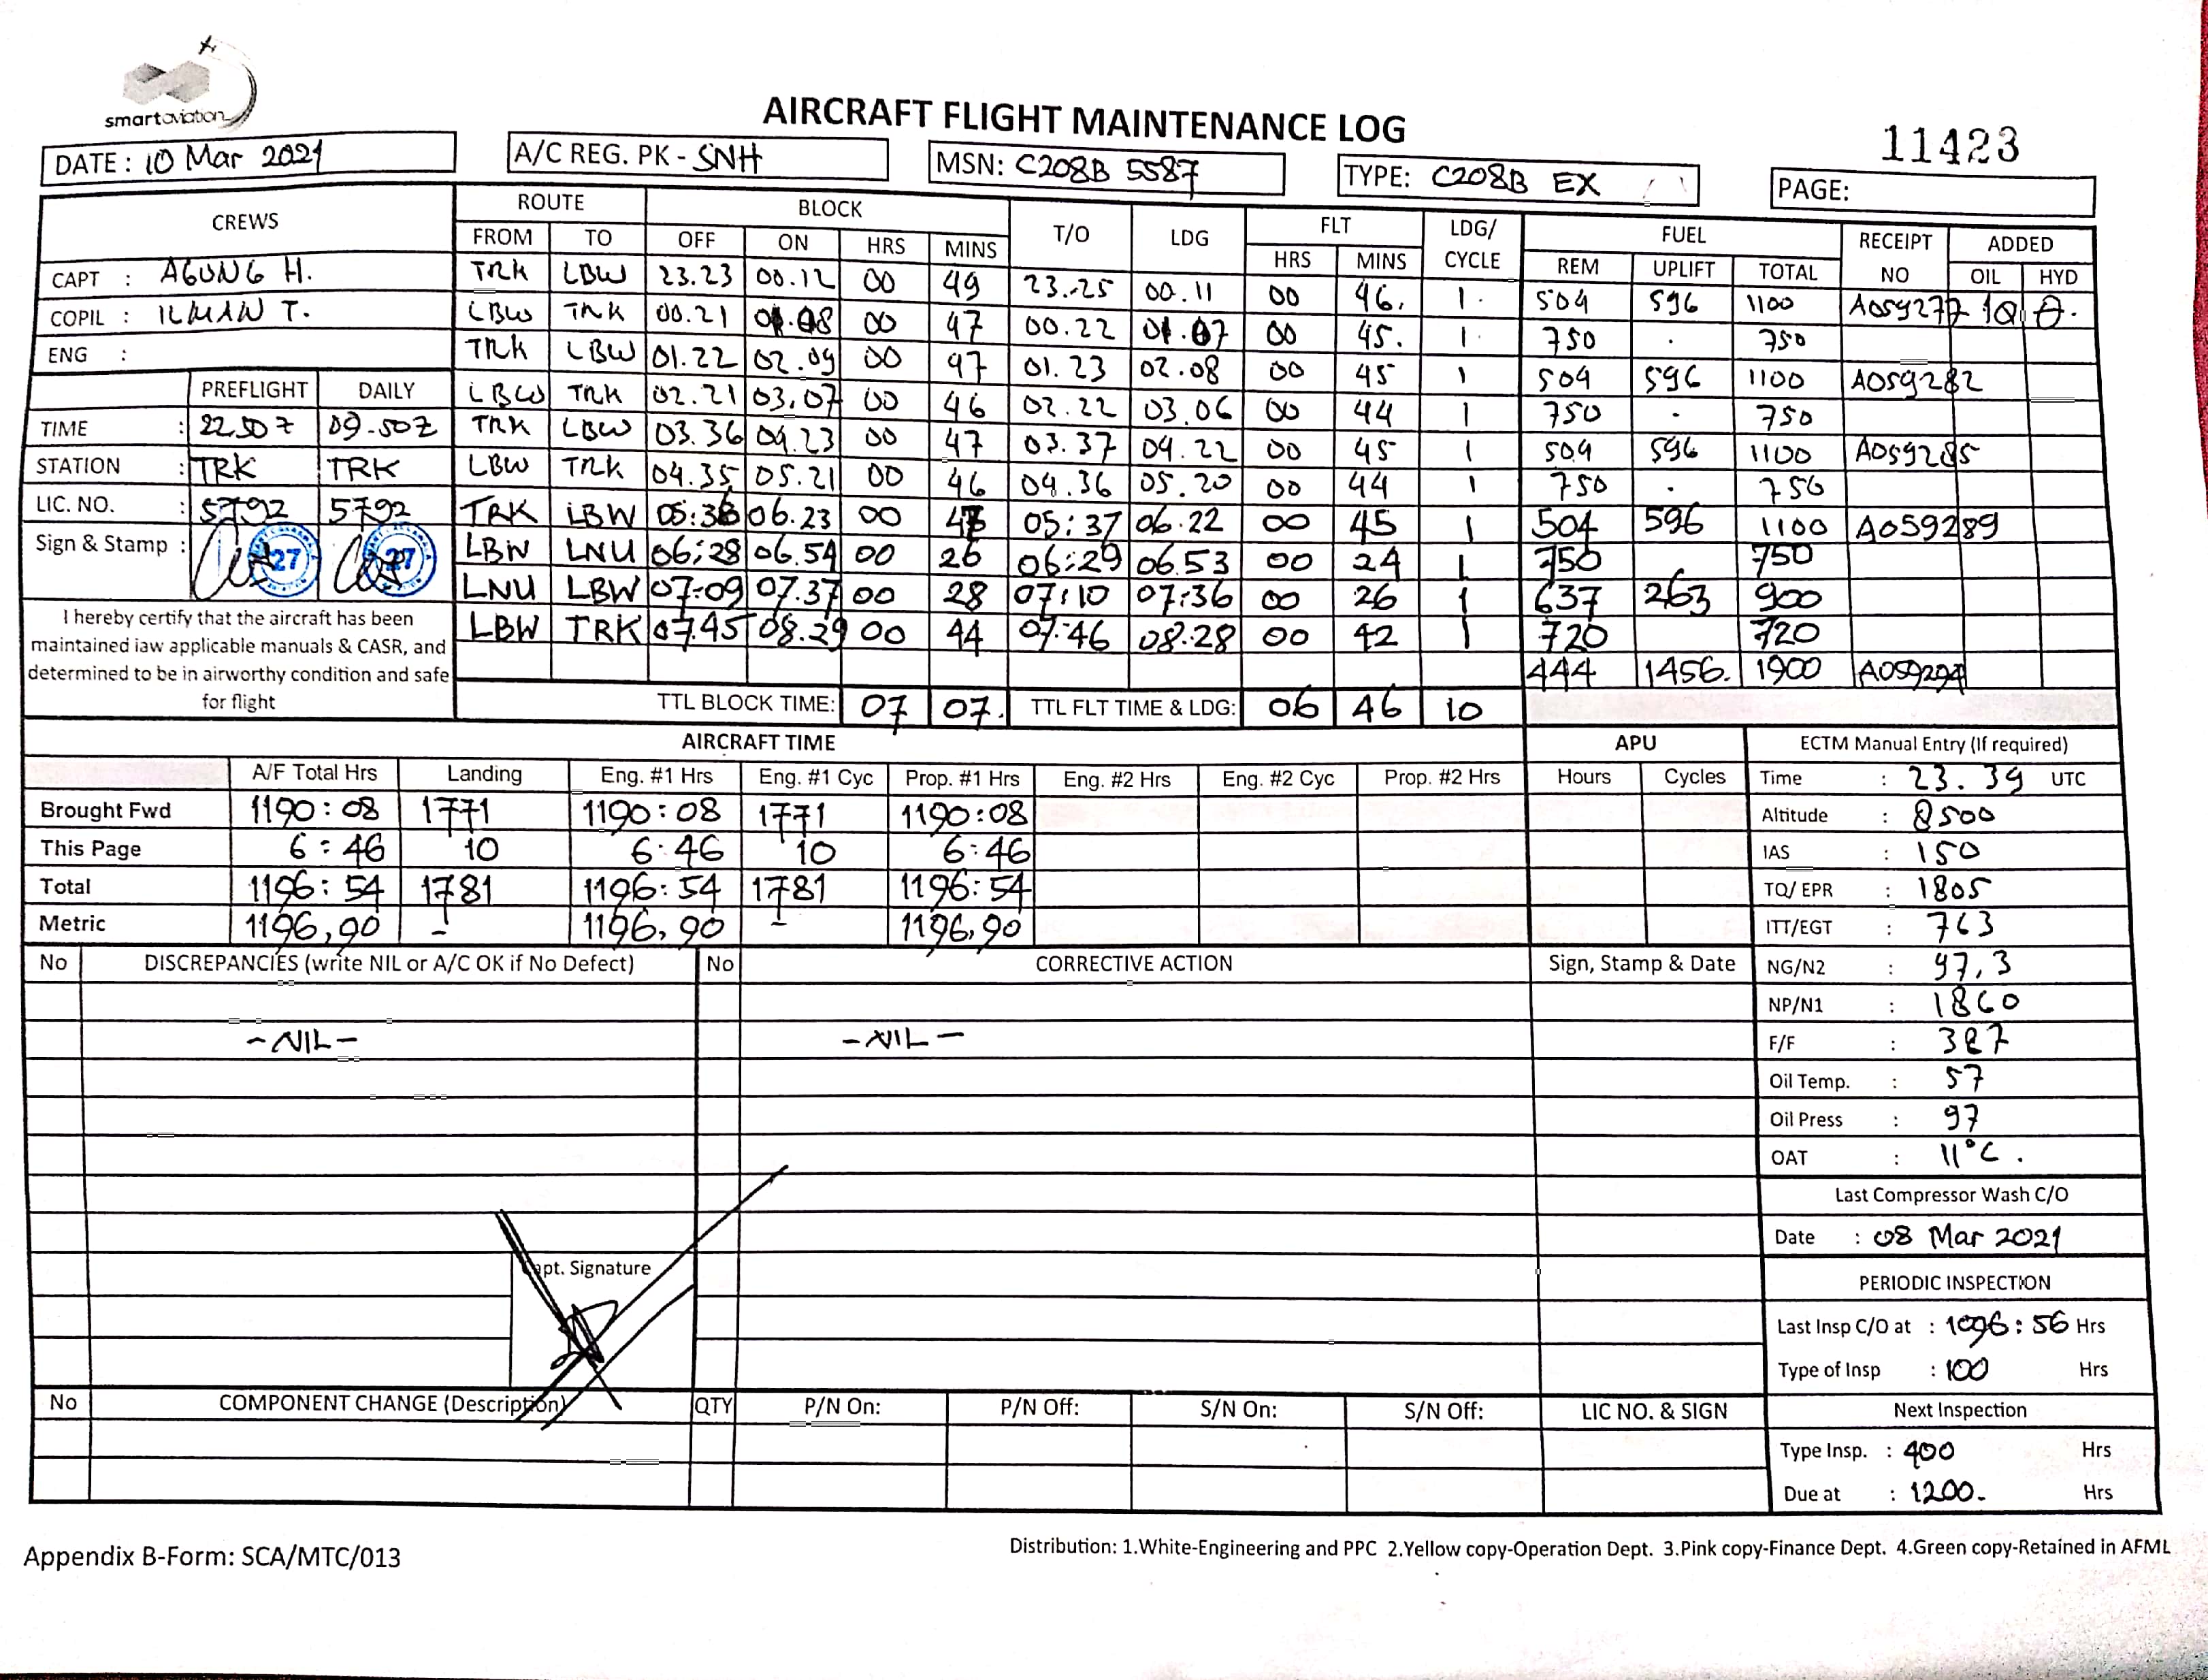 smartaviation
AIRCRAFT FLIGHT MAINTENANCE LOG
11423
DATE : 10 Mar 2021
A/C REG. PK - SNH
MSN: C208B 5587
TYPE: C208B EX
PAGE:
CREWS ROUTE BLOCK T/O LDG FLT LDG/ CYCLE FUEL RECEIPT NO ADDED
FROM TO OFF ON HRS MINS HRS MINS REM UPLIFT TOTAL OIL HYD
CAPT : AGUNG H.
COPIL : ILMAN T.
ENG :
PREFLIGHT DAILY
TIME : 22.50 Z 09.50Z
STATION : TRK TRK
LIC. NO. : 5792 5792
Sign & Stamp : 27 27
I hereby certify that the aircraft has been
maintained iaw applicable manuals & CASR, and
determined to be in airworthy condition and safe
for flight
TRK LBW 23.23 00.12 00 49 23.25 00.11 00 46. 1. 504 596 1100 A059277 1Q
LBW TRK 00.21 01.08 00 47 00.22 01.07 00 45. 1. 750 . 750
TRK LBW 01.22 02.09 00 47 01.23 02.08 00 45 1 504 596 1100 A059282
LBW TRK 02.21 03.07 00 46 02.22 03.06 00 44 1 750 . 750
TRK LBW 03.36 04.23 00 47 03.37 04.22 00 45 1 504 596 1100 A059285
LBW TRK 04.35 05.21 00 46 04.36 05.20 00 44 1 750 . 750
TRK LBW 05:36 06.23 00 47 05:37 06.22 00 45 1 504 596 1100 A059289
LBW LNU 06:28 06.54 00 26 06:29 06.53 00 24 1 750 750
LNU LBW 07:09 07.37 00 28 07:10 07:36 00 26 1 637 263 900
LBW TRK 07.45 08.29 00 44 07.46 08.28 00 42 1 720 720
444 1456. 1900 A059294
TTL BLOCK TIME: 07 07. TTL FLT TIME & LDG: 06 46 10
AIRCRAFT TIME APU
A/F Total Hrs Landing Eng. #1 Hrs Eng. #1 Cyc Prop. #1 Hrs Eng. #2 Hrs Eng. #2 Cyc Prop. #2 Hrs Hours Cycles
Brought Fwd 1190:08 1771 1190:08 1771 1190:08
This Page 6:46 10 6:46 10 6:46
Total 1196:54 1781 1196:54 1781 1196:54
Metric 1196,90 - 1196,90 - 1196,90
ECTM Manual Entry (If required)
Time : 23.39 UTC
Altitude : 8500
IAS : 150
TQ/ EPR : 1805
ITT/EGT : 763
NG/N2 : 97,3
NP/N1 : 1860
F/F : 387
Oil Temp. : 57
Oil Press : 97
OAT : 11°C.
Last Compressor Wash C/O
Date : 08 Mar 2021
PERIODIC INSPECTION
Last Insp C/O at : 1096:56 Hrs
Type of Insp : 100 Hrs
Next Inspection
Type Insp. : 400 Hrs
Due at : 1200. Hrs
No DISCREPANCIES (write NIL or A/C OK if No Defect) No CORRECTIVE ACTION Sign, Stamp & Date
- NIL - - NIL -
pt. Signature
No COMPONENT CHANGE (Description) QTY P/N On: P/N Off: S/N On: S/N Off: LIC NO. & SIGN
Appendix B-Form: SCA/MTC/013
Distribution: 1.White-Engineering and PPC 2.Yellow copy-Operation Dept. 3.Pink copy-Finance Dept. 4.Green copy-Retained in AFML